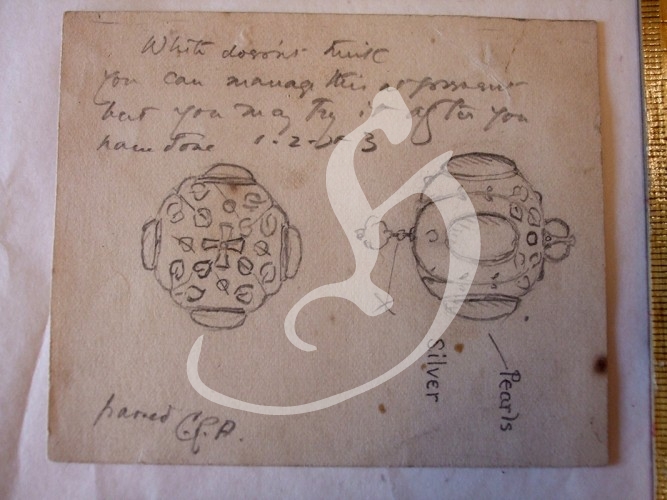 White doesn't think
you can manage this at present
but you may try it after you
have done 1 - 2 - or 3
Silver
Pearls
passed C.R.A.